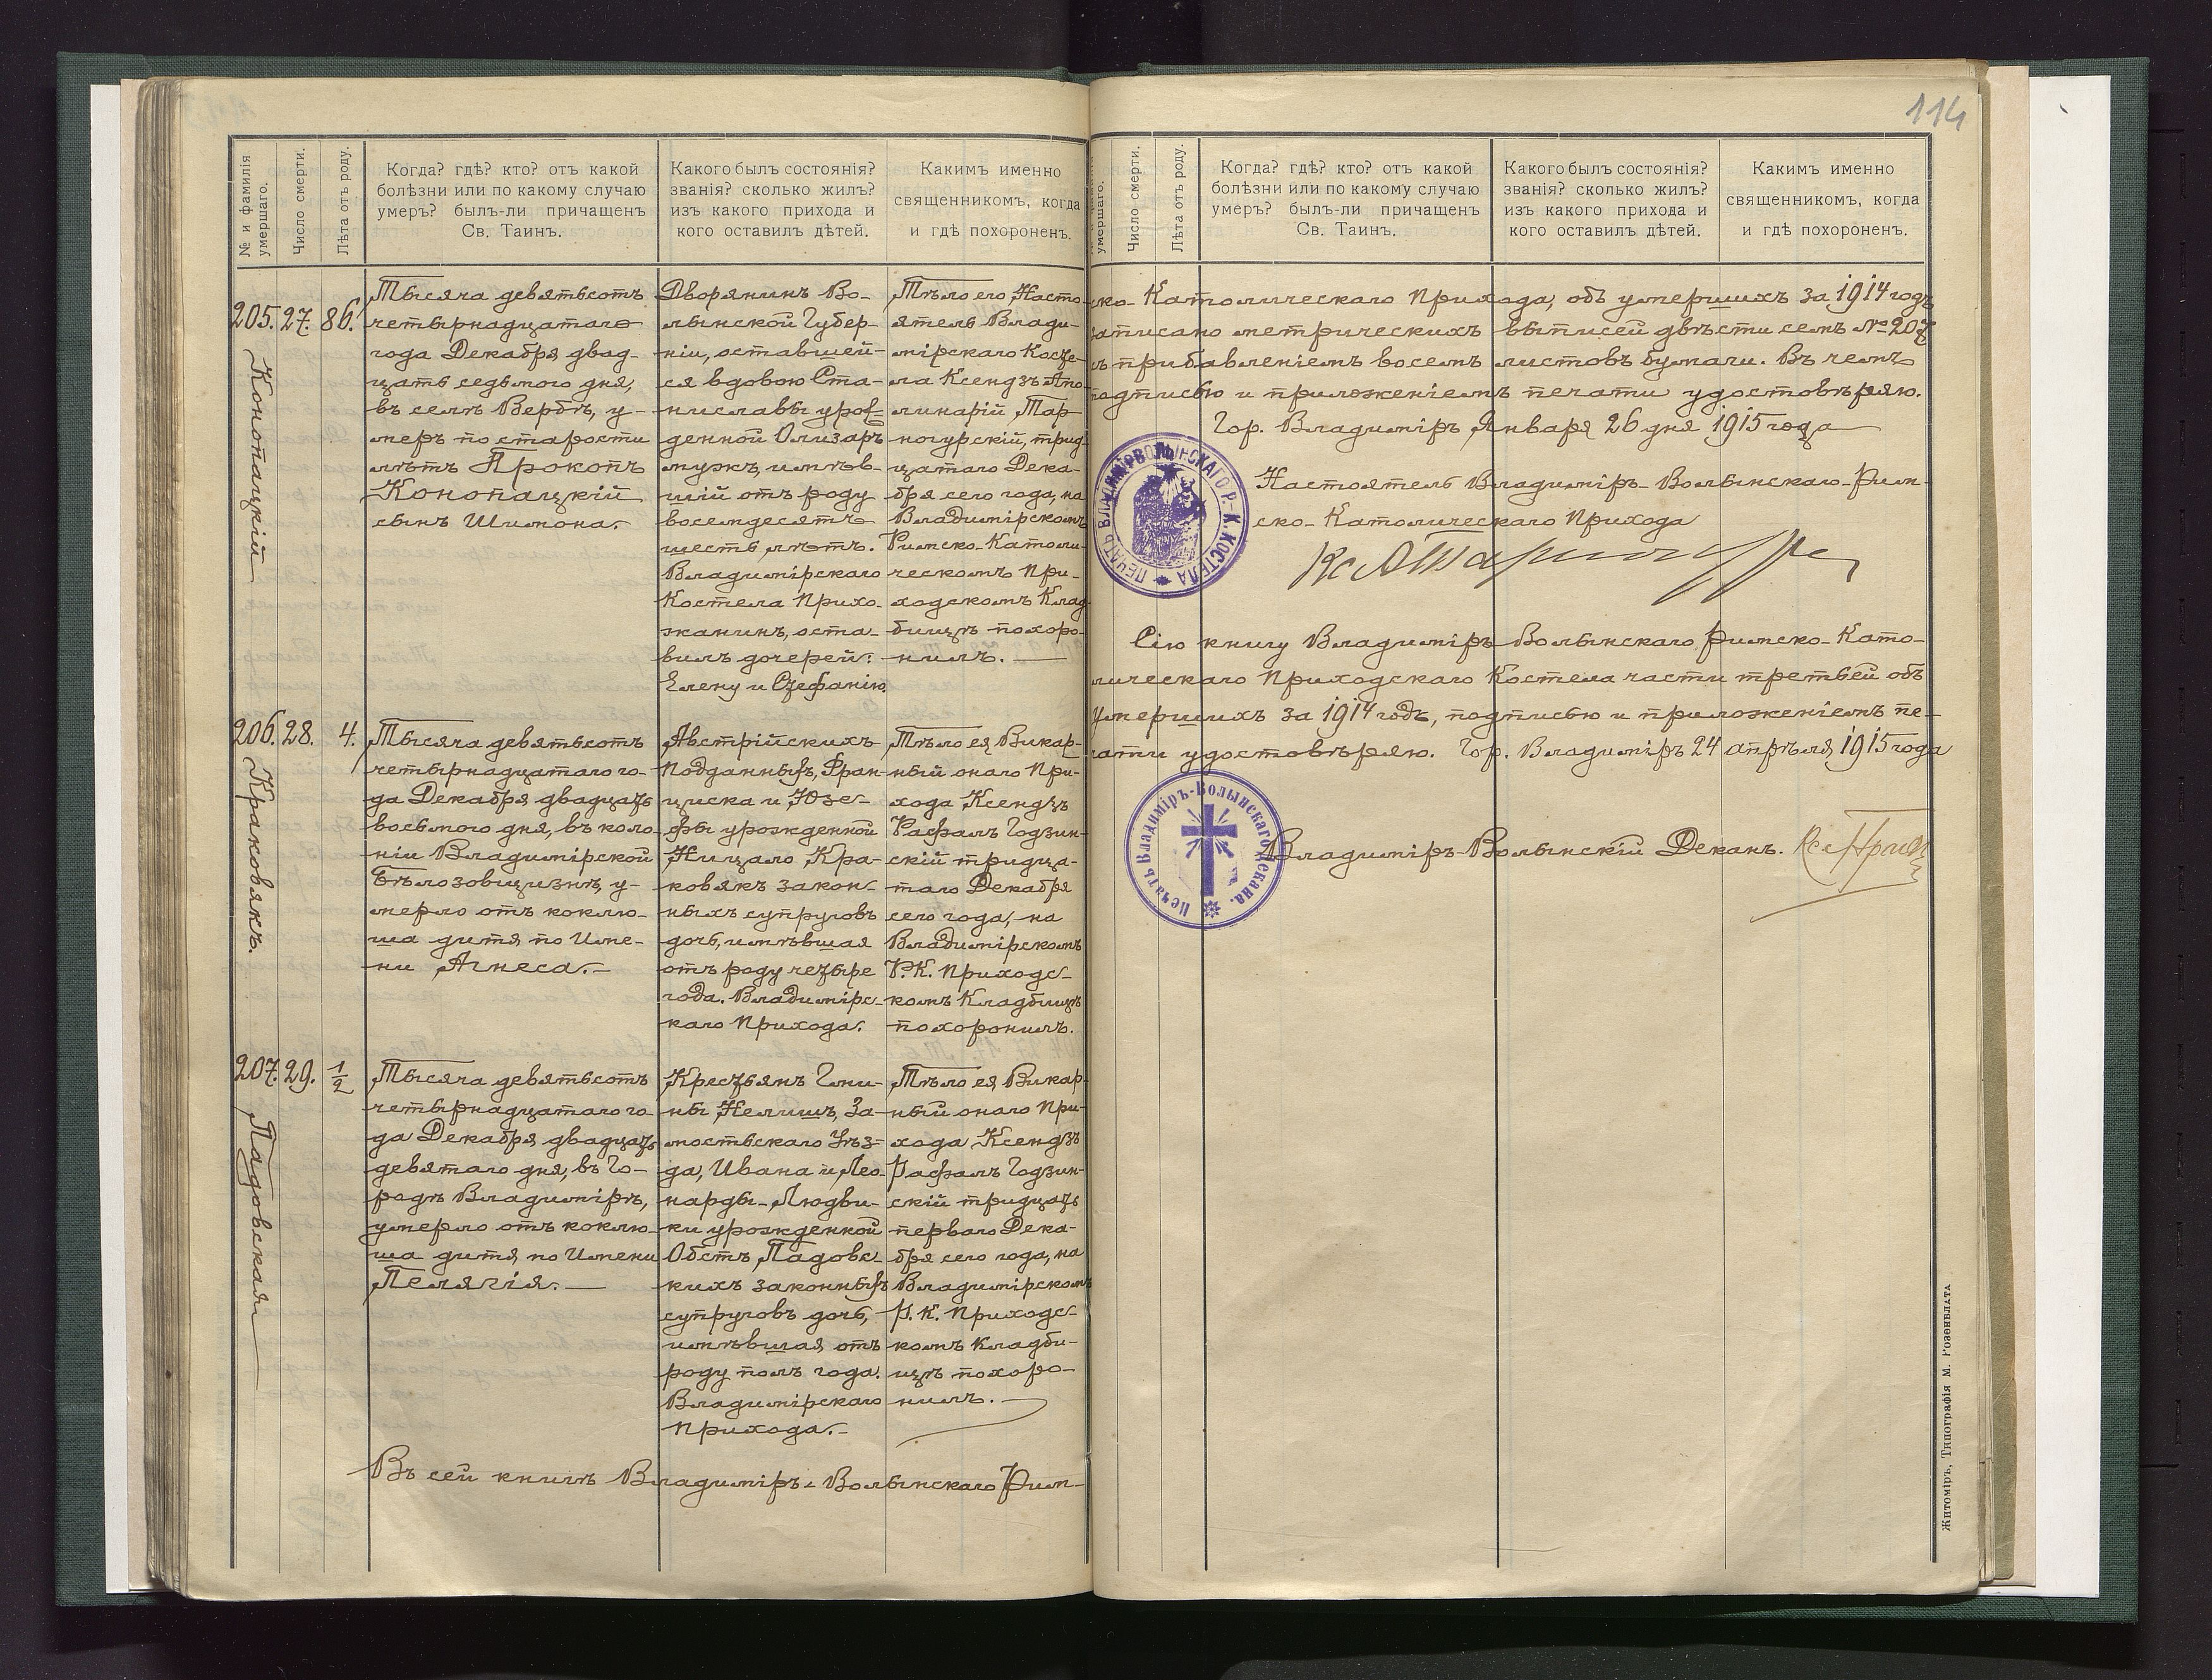 114
№ и фамилія умершаго.
Число смерти.
Лѣта отъ роду.
Когда? гдѣ? кто? отъ какой
болѣзни или по какому случаю
умеръ? былъ-ли причащенъ
Св. Таинъ.
Какого былъ состоянія?
званія? сколько жилъ?
изъ какого прихода и
кого оставилъ дѣтей.
Какимъ именно
священникомъ, когда
и гдѣ похороненъ.
205.
Конопацкій
27.
86.
Тысяча девятьсотъ
четырнадцатаго
года Декабря двад-
цать седьмого дня,
въ селѣ Вербѣ, у-
меръ по старости
лѣтъ Прокопъ
Конопацкій
сынъ Шимона.
Дворянинъ Во-
лынской Губер-
ніи, оставшей-
ся вдовою Ста-
ниславы урож-
денной Олизаръ
мужъ, имѣв-
шій отъ роду
восемдесятъ
шесть лѣтъ.
Владимірскаго
Костела Прихо-
жанинъ, оста-
вилъ дочерей:
Елену и Стефанію.
Тѣло его Насто-
ятель Влади-
мірскаго Косте-
ла Ксендзъ Апо-
линарій Тар
ногурскій, трид-
цатаго Дека-
бря сего года, на
Владимірскомъ
Римско-Католи-
ческомъ При-
ходскомъ Клад-
бищѣ похоро-
нилъ.
206.
Краковякъ.
28.
4.
Тысяча девятьсотъ
четырнадцатаго го-
да Декабря двадцать
восьмого дня, въ коло-
ніи Владимірской
Бѣлозовщизнѣ, у-
мерло отъ коклю-
ша дитя по Име-
ни Агнеса.
Австрійскихъ
Подданныхъ, Фран-
циска и Юзе-
фы урожденной
Ницало, Кра-
ковякъ закон-
ныхъ супруговъ
дочь, имѣвшая
отъ роду четыре
года. Владимірс-
каго Прихода.
Тѣло ея Викар-
ный онаго При-
хода Ксендзъ
Рафалъ Годзин-
скій тридца-
таго Декабря
сего года, на
Владимірскомъ
Р.К. Приходс-
комъ Кладбищѣ
похоронилъ.
207.
Падовская
29.
1/2
Тысяча девятьсотъ
четырнадцатаго го-
да Декабря двадцать
девятаго дня, въ Го-
родѣ Владимірѣ,
умерло отъ коклю-
ша дитя по Имени
Пелягія.
Крестьянъ Гми-
ны Нелишъ, За-
мостьскаго Уѣз-
да, Ивана и Лео-
нарды-Людви-
ки урожденной
Обстъ, Падовс-
кихъ законныхъ
супруговъ дочь,
имѣвшая отъ
роду полъ года.
Владимірскаго
Прихода.
Тѣло ея Викар-
ный онаго При-
хода Ксендзъ
Рафалъ Годзин-
скій тридцать
перваго Дека-
бря сего года, на
Владимірскомъ
Р. К. Приходс-
комъ Кладби-
щѣ похоро-
нилъ.
Въ сей книгѣ Владиміръ-Волынскаго Рим-
умершаго.
Число смерти.
Лѣта отъ роду.
Когда? гдѣ? кто? отъ какой
болѣзни или по какому случаю
умеръ? былъ-ли причащенъ
Св. Таинъ.
Какого былъ состоянія?
званія? сколько жилъ?
изъ какого прихода и
кого оставилъ дѣтей.
Какимъ именно
священникомъ, когда
и гдѣ похороненъ.
ско-Католическаго Прихода, объ умершихъ за 1914 годъ
записано метрическихъ выписей двѣсти семь №207
съ прибавленіемъ восемь листовъ бумаги. Въ чемъ
подписью и приложеніемъ печати удостовѣряю.
Гор. Владиміръ, Января 26 дня 1915 года
Настоятель Владиміръ-Волынскаго-Рим-
ско-Католическаго Прихода
ПЕЧАТЬ ВЛАДИМІРВОЛЫНСКАГО Р.-К. КОСТЕЛА
Сію книгу Владиміръ-Волынскаго Римско-Като-
лическаго Приходскаго Костела части третьей объ
Умершихъ за 1914 годъ, подписью и приложеніемъ пе-
чати удостовѣряю. Гор. Владиміръ 24 апрѣля 1915 года
Печать Владиміръ-Волынскаго Декана.
Владиміръ-Волынскій Деканъ.
Житоміръ, Типографія М. Розенблата